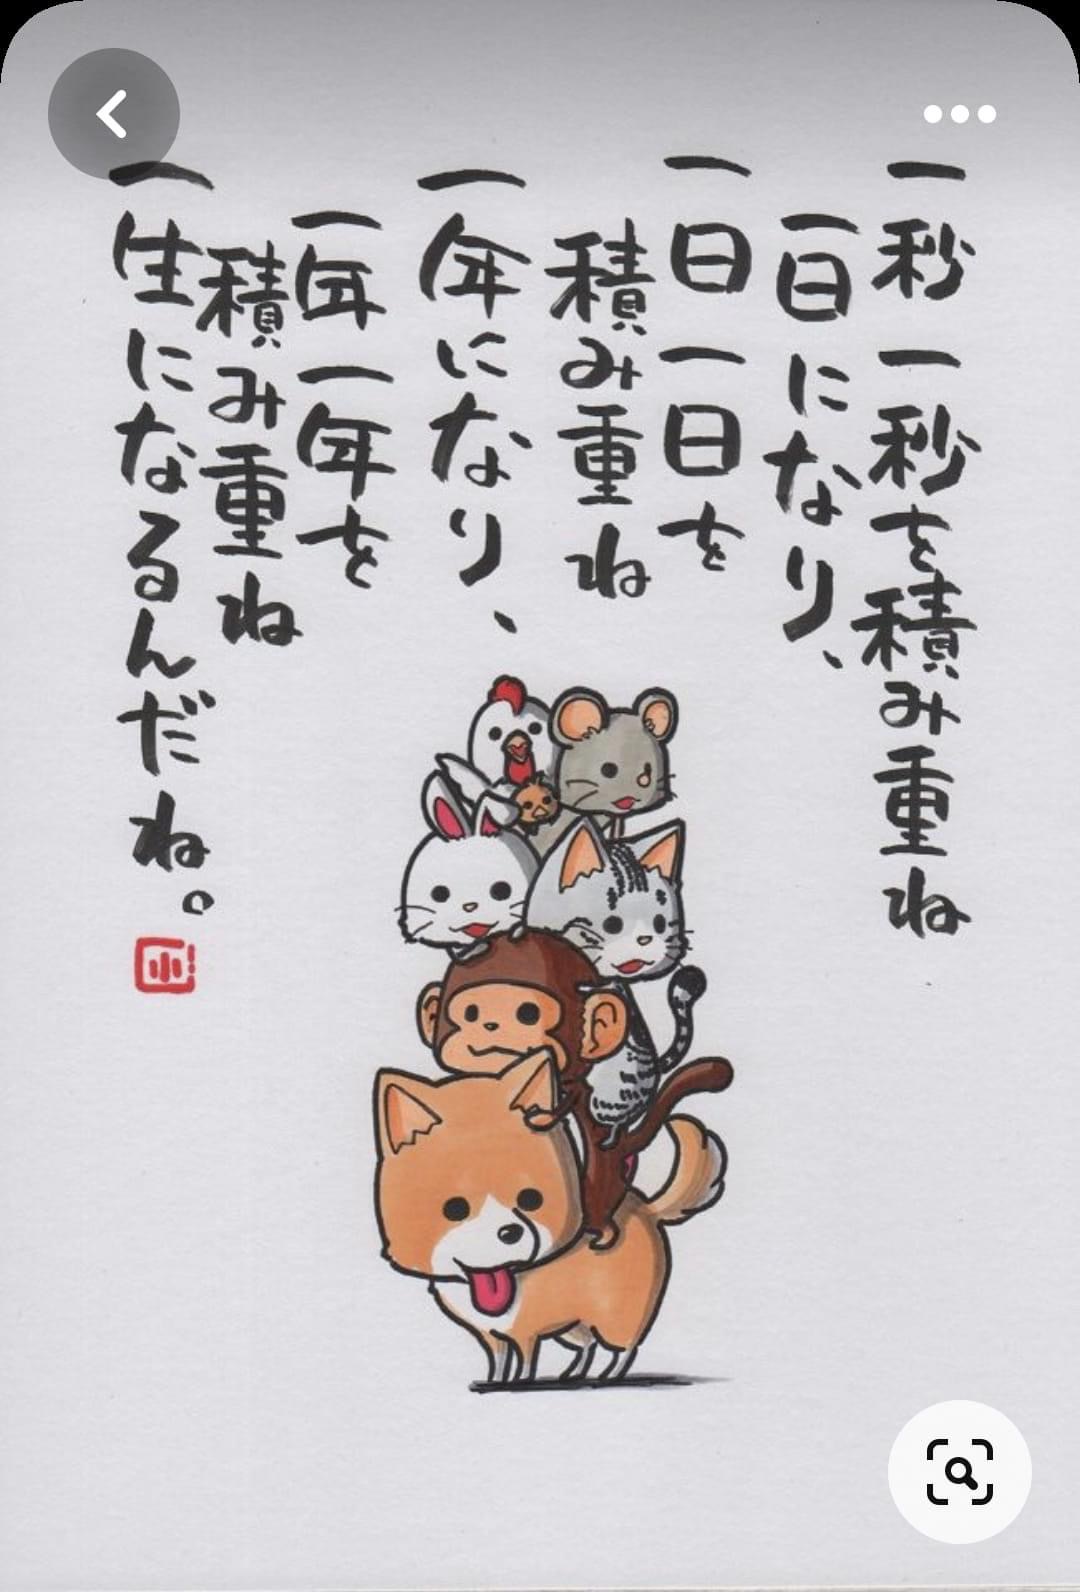 一秒一秒を積み重ね
一日になり、
一日一日を
積み重ね
一年になり、
一年一年を
積み重ね
一生になるんだね。